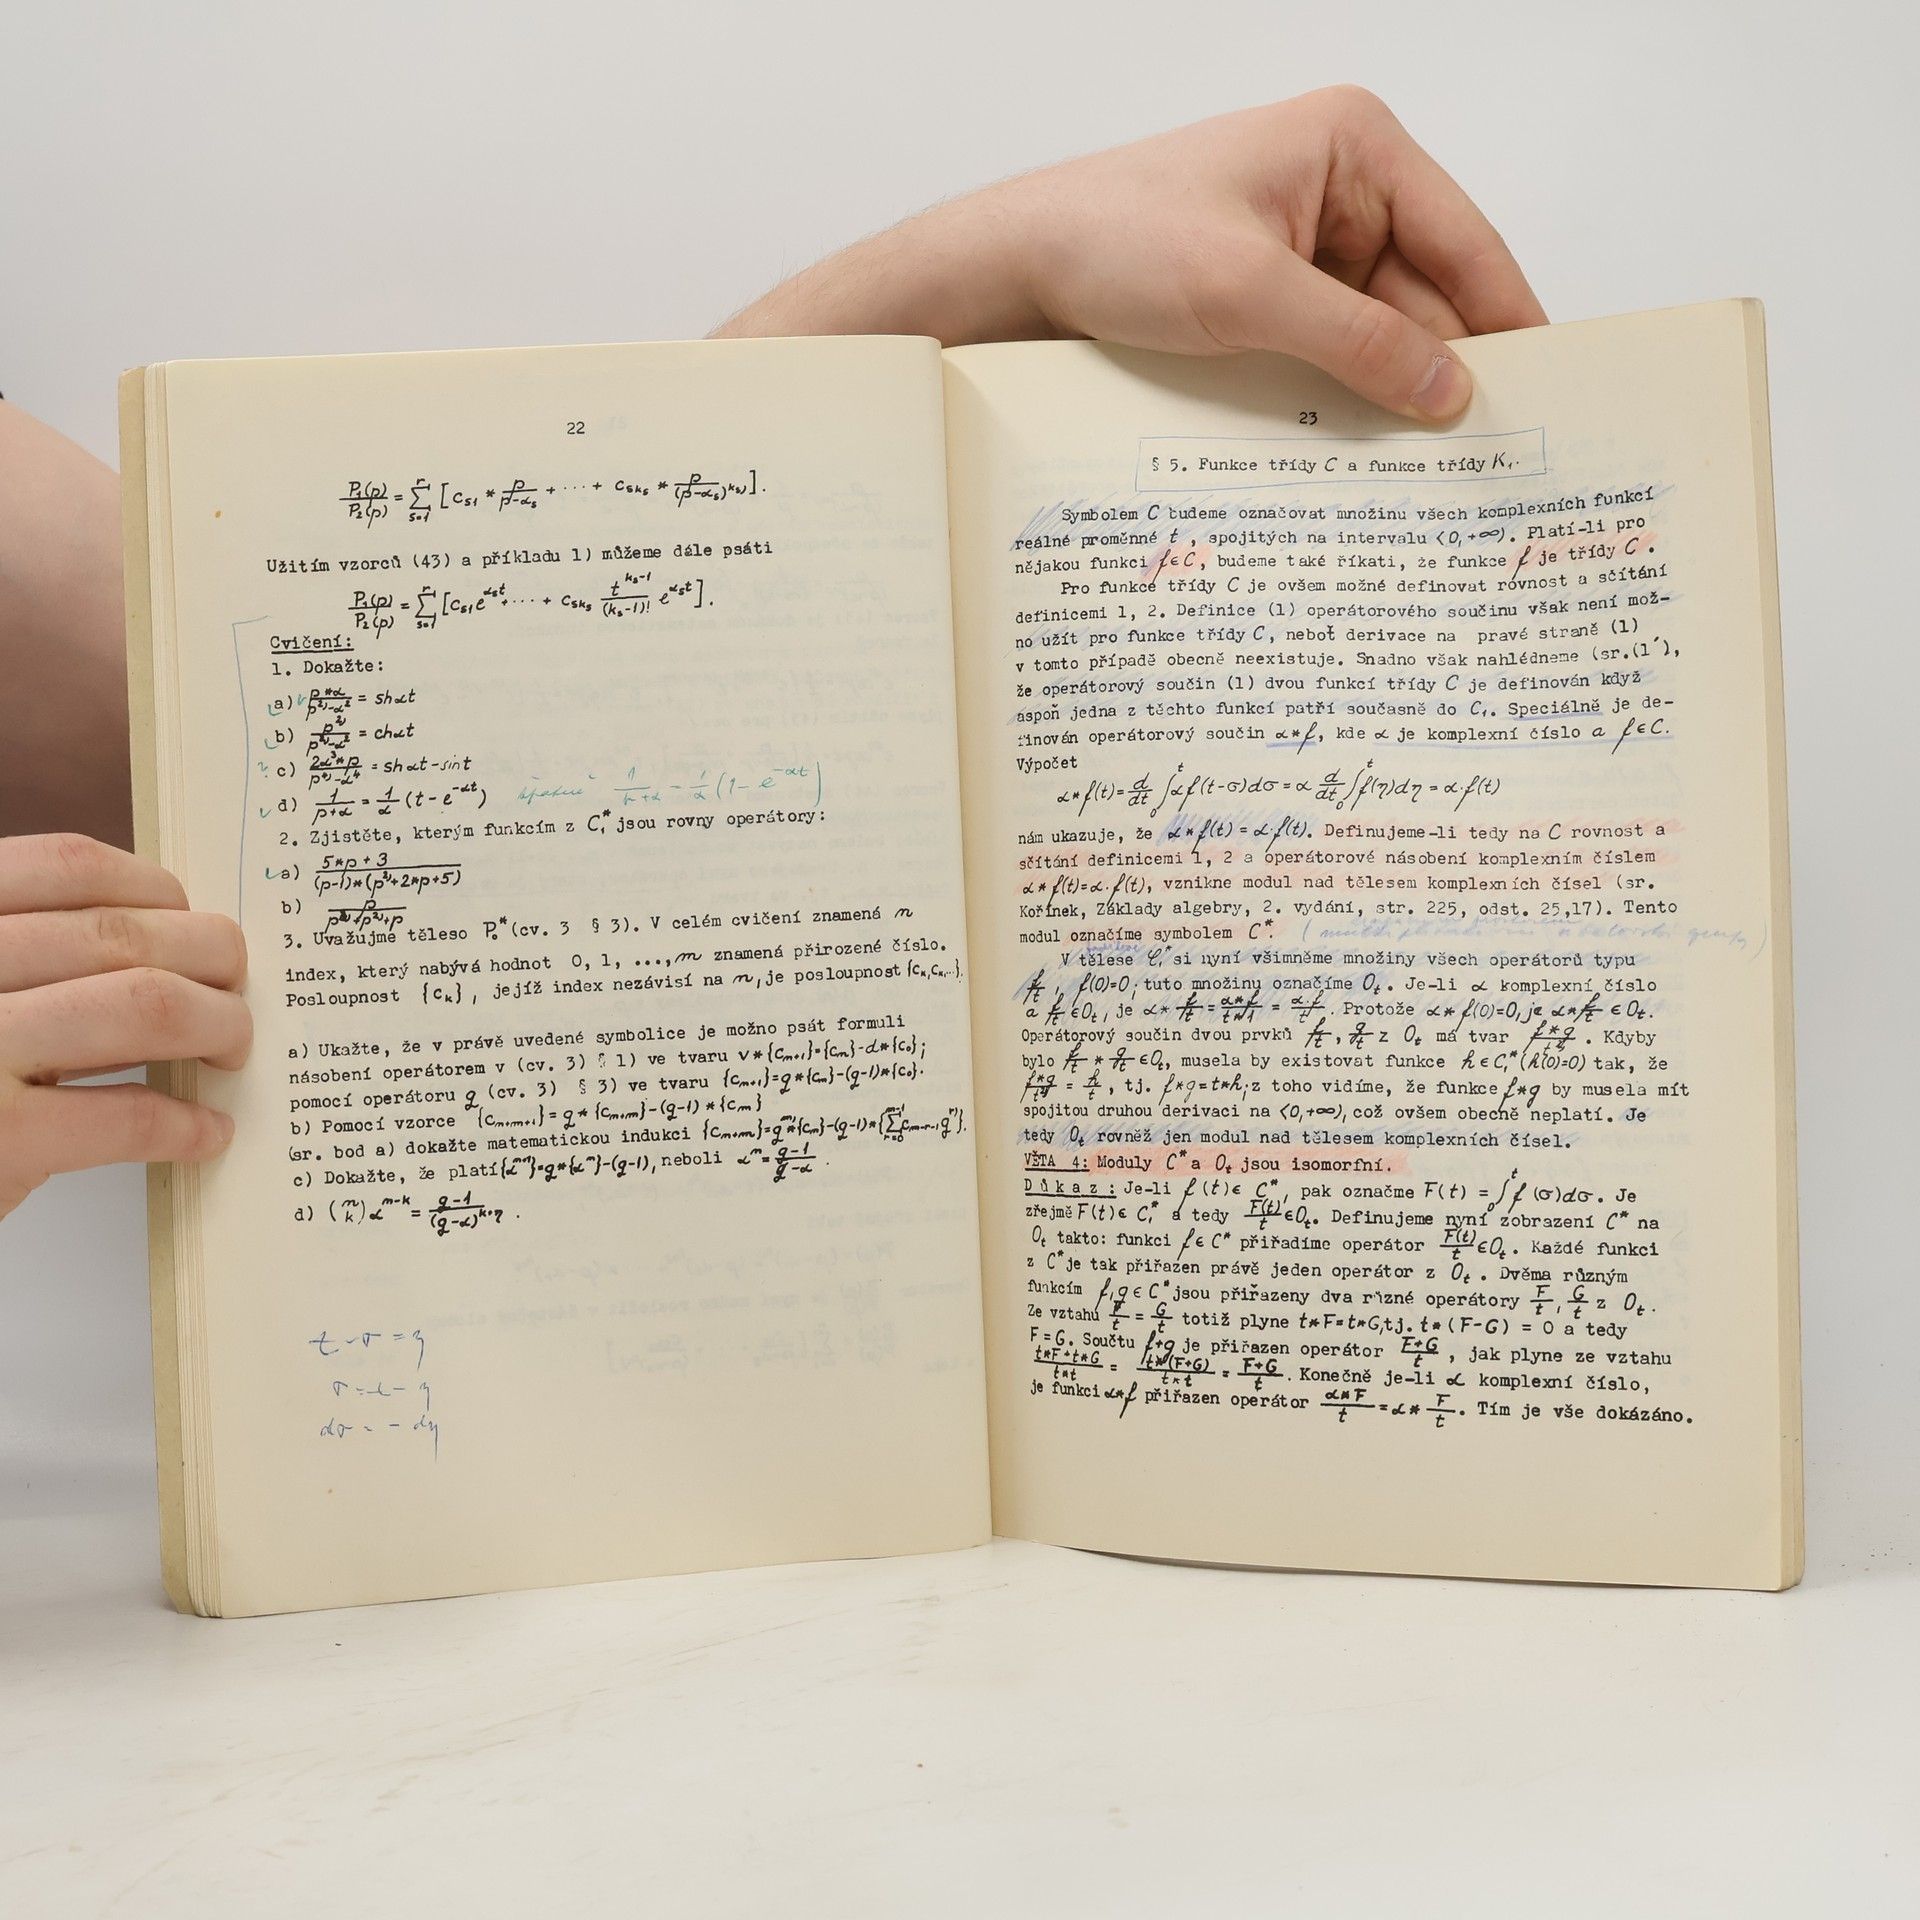 22
P₁(p)/P₂(p) = Σ_{s=1}^{r} [c_{s1} * p/(p-α_s) + ··· + c_{sk_s} * p/(p-α_s)^{k_s)}].
Užitím vzorců (43) a příkladu 1) můžeme dále psáti
P₁(p)/P₂(p) = Σ_{s=1}^{r} [c_{s1} e^{α_s t} + ··· + c_{sk_s} t^{k_s-1}/(k_s-1)! e^{α_s t}].
Cvičení:
1. Dokažte:
a) p*α/(p²⁾-α²) = shαt
b) p²⁾/(p²⁾-α²) = chαt
c) 2α³*p/(p⁴⁾-α⁴) = shαt-sint
d) 1/(p+α) = 1/α (t-e^{-αt}) špatně 1/(p+α) = 1/α (1-e^{-αt})
2. Zjistěte, kterým funkcím z C₁* jsou rovny operátory:
a) (5*p+3)/((p-1)*(p²⁾+2*p+5))
b) p/(p³⁾+p²⁾+p)
3. Uvažujme těleso P₀* (cv. 3 § 3). V celém cvičení znamená n
index, který nabývá hodnot 0, 1, ...,m znamená přirozené číslo.
Posloupnost {cₖ}, jejíž index nezávisí na n, je posloupnost {cₖ,cₖ,...}.
a) Ukažte, že v právě uvedené symbolice je možno psát formuli
násobení operátorem v (cv. 3) § 1) ve tvaru v*{c_{n+1}}={c_n}-d*{c₀};
pomocí operátoru g (cv. 3) § 3) ve tvaru {c_{n+1}}=g*{c_n}-(g-1)*{c₀}.
b) Pomocí vzorce {c_{n+m+1}}=g*{c_{n+m}}-(g-1)*{c_m}
(sr. bod a) dokažte matematickou indukci {c_{n+m}}=g^{m)}*{c_n}-(g-1)*{Σ_{r=0}^{m-1} c_{m-r-1} g^{r)}}.
c) Dokažte, že platí {α^{n+1}}=g*{α^n}-(g-1), neboli α^n = (g-1)/(g-α) .
d) (n k) α^{n-k} = (g-1)/(g-α)^{k+1)} .
t-σ = η
σ = t-η
dσ = - dη
23
§ 5. Funkce třídy C a funkce třídy K₁.
Symbolem C budeme označovat množinu všech komplexních funkcí
reálné proměnné t , spojitých na intervalu <0,+∞). Platí-li pro
nějakou funkci f∈C, budeme také říkati, že funkce f je třídy C .
Pro funkce třídy C je ovšem možné definovat rovnost a sčítání
definicemi 1, 2. Definice (1) operátorového součinu však není mož-
no užít pro funkce třídy C, neboť derivace na pravé straně (1)
v tomto případě obecně neexistuje. Snadno však nahlédneme (sr.(1´),
že operátorový součin (1) dvou funkcí třídy C je definován když
aspoň jedna z těchto funkcí patří současně do C₁. Speciálně je de-
finován operátorový součin α*f, kde α je komplexní číslo a f∈C.
Výpočet
α*f(t) = d/dt ∫₀ᵗ αf(t-σ)dσ = α d/dt ∫₀ᵗ f(η)dη = α·f(t)
nám ukazuje, že α*f(t) = α·f(t). Definujeme-li tedy na C rovnost a
sčítání definicemi 1, 2 a operátorové násobení komplexním číslem
α*f(t)=α·f(t), vznikne modul nad tělesem komplexních čísel (sr.
Kořínek, Základy algebry, 2. vydání, str. 225, odst. 25,17). Tento
modul označíme symbolem C*.
V tělese C₁* si nyní všimněme množiny všech operátorů typu
f/t , f(0)=0; tuto množinu označíme Oₜ. Je-li α komplexní číslo
a f/t ∈Oₜ, je α* f/t = α*f/t*1 = α·f/t . Protože α*f(0)=0, je α* f/t ∈ Oₜ.
Operátorový součin dvou prvků f/t , g/t z Oₜ má tvar f*g/t²⁾ . Kdyby
bylo f/t * g/t ∈Oₜ, musela by existovat funkce h∈C₁*(h(0)=0) tak, že
f*g/t²⁾ = h/t , tj. f*g=t*h; z toho vidíme, že funkce f*g by musela mít
spojitou druhou derivaci na <0,+∞), což ovšem obecně neplatí. Je
tedy Oₜ rovněž jen modul nad tělesem komplexních čísel.
VĚTA 4: Moduly C* a Oₜ jsou isomorfní.
Důkaz: Je-li f(t)∈ C*, pak označme F(t) = ∫₀ᵗ f(σ)dσ. Je
zřejmě F(t)∈ C₁* a tedy F(t)/t ∈Oₜ. Definujeme nyní zobrazení C* na
Oₜ takto: funkci f∈C* přiřadíme operátor F(t)/t ∈Oₜ. Každé funkci
z C* je tak přiřazen právě jeden operátor z Oₜ . Dvěma různým
funkcím f,g∈C* jsou přiřazeny dva různé operátory F/t , G/t z Oₜ.
Ze vztahu F/t = G/t totiž plyne t*F=t*G, tj. t*(F-G) = 0 a tedy
F=G. Součtu f+g je přiřazen operátor F+G/t , jak plyne ze vztahu
t*F+t*G/t*t = t*(F+G)/t*t = F+G/t . Konečně je-li α komplexní číslo,
je funkci α*f přiřazen operátor α*F/t = α* F/t . Tím je vše dokázáno.